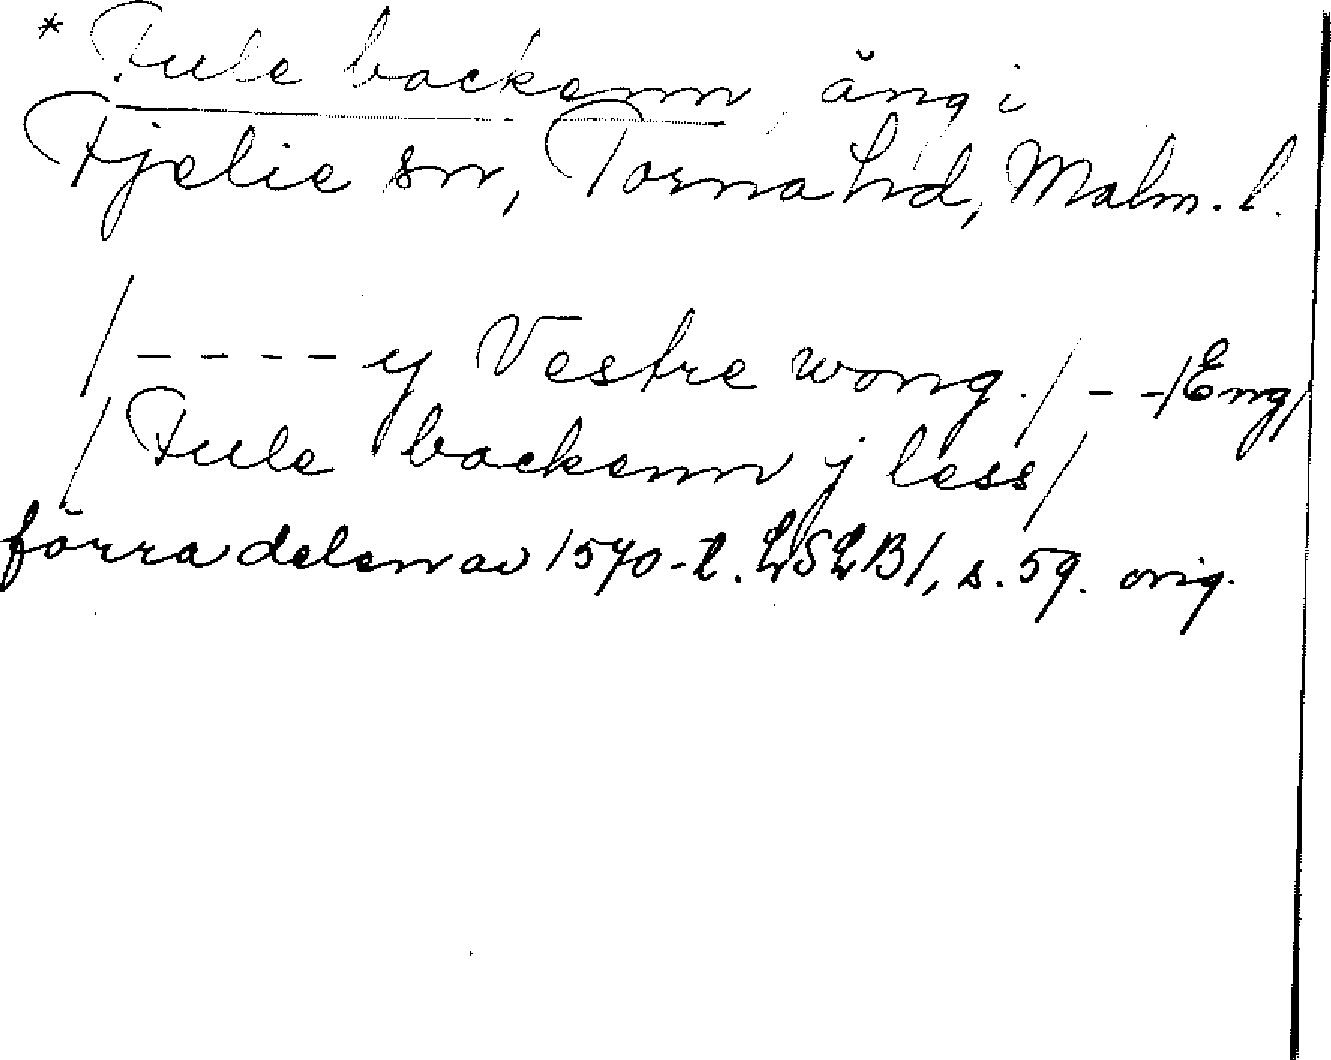 * Fule backenn, äng i
Fjelie sn, Torna hd, Malm. l.
/ - - - - y Vestre wong. / - - /Eng/
/ Fule backenn j less /
förra delen av 1570-t. LSLB1, s. 59. orig.